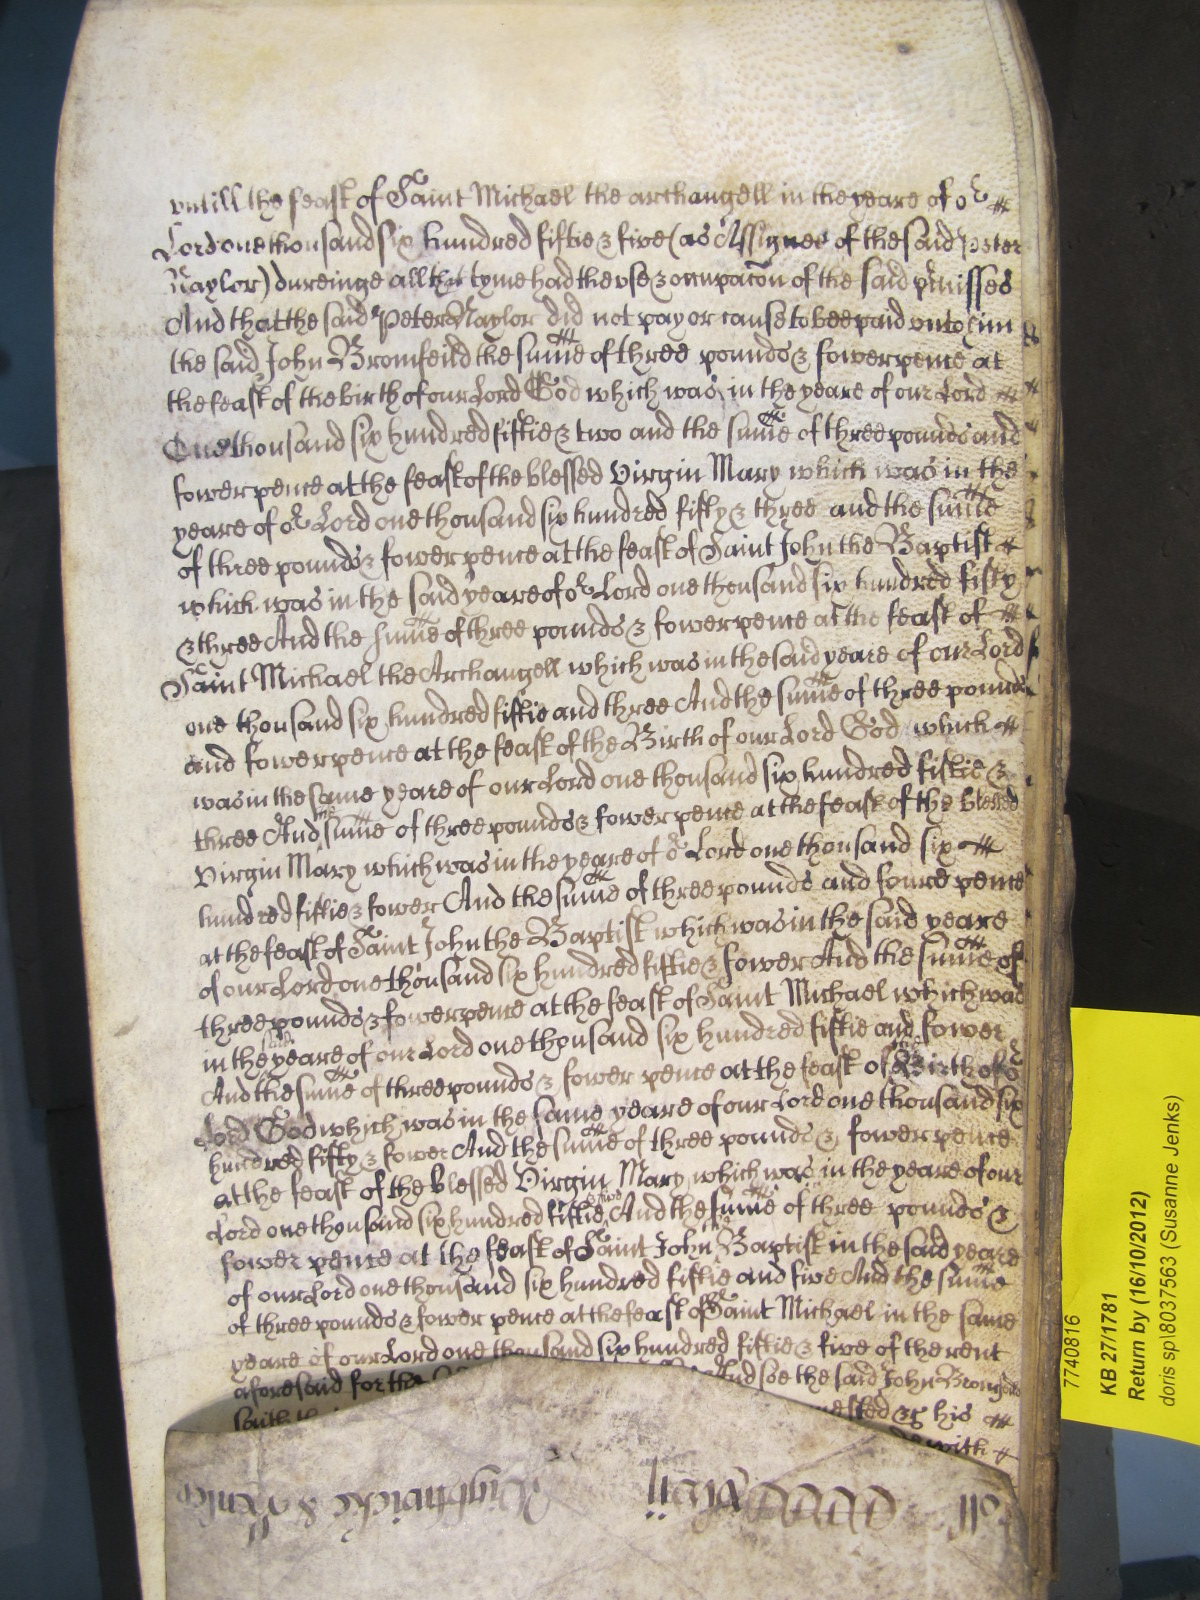 untill the feast of Saint Michael the archangell in the yeare of or
Lord one thousand six hundred fiftie & five (as Assignee of the said Peter
Naylor) dureinge all that tyme had the use & occupacon of the said pmisses
And that the said Peter Naylor did not pay or cause to bee paid unto him
the said John Bromfeild the summe of three pounds & fower pence at
the feast of the birth of our Lord God which was in the yeare of our Lord
One thousand six hundred fiftie & two and the summe of three pounds and
fower pence at the feast of the blessed Virgin Mary which was in the
yeare of or Lord one thousand six hundred fifty & three and the summe
of three pounds & fower pence at the feast of Saint John the Baptist
which was in the said yeare of or Lord one thousand six hundred fifty
& three And the summe of three pounds & fower pence at the feast of
Saint Michael the Archangell which was in the said yeare of our Lord
one thousand six hundred fiftie and three And the summe of three pounds
and fower pence at the feast of the Birth of our Lord God which
was in the same yeare of our Lord one thousand six hundred fiftie &
three And the summe of three pounds & fower pence at the feast of the blessed
Virgin Mary which was in the yeare of or Lord one thousand six
hundred fiftie & fower And the summe of three pounds and foure pence
at the feast of Saint John the Baptist which was in the said yeare
of our Lord one thousand six hundred fiftie & fower And the summe of
three pounds & fower pence at the feast of Saint Michael which was
in the said yeare of our Lord one thousand six hundred fiftie and fower
And the summe of three pounds & fower pence at the feast of the Birth of or
Lord God which was in the same yeare of our Lord one thousand six
hundred fifty & fower And the summe of three pounds & fower pence
at the feast of the blessed Virgin Mary which was in the yeare of our
Lord one thousand six hundred fiftie & five And the summe of three pounds &
fower pence at the feast of Saint John the Baptist in the said yeare
of our Lord one thousand six hundred fiftie and five And the summe
of three pounds & fower pence at the feast of Saint Michael in the same
yeare of our Lord one thousand six hundred fiftie & five of the rent
aforesaid for the And soe the said John Bromfeild
saith his
with
7740816
KB 27/1781
Return by (16/10/2012)
doris sp\8037563 (Susanne Jenks)